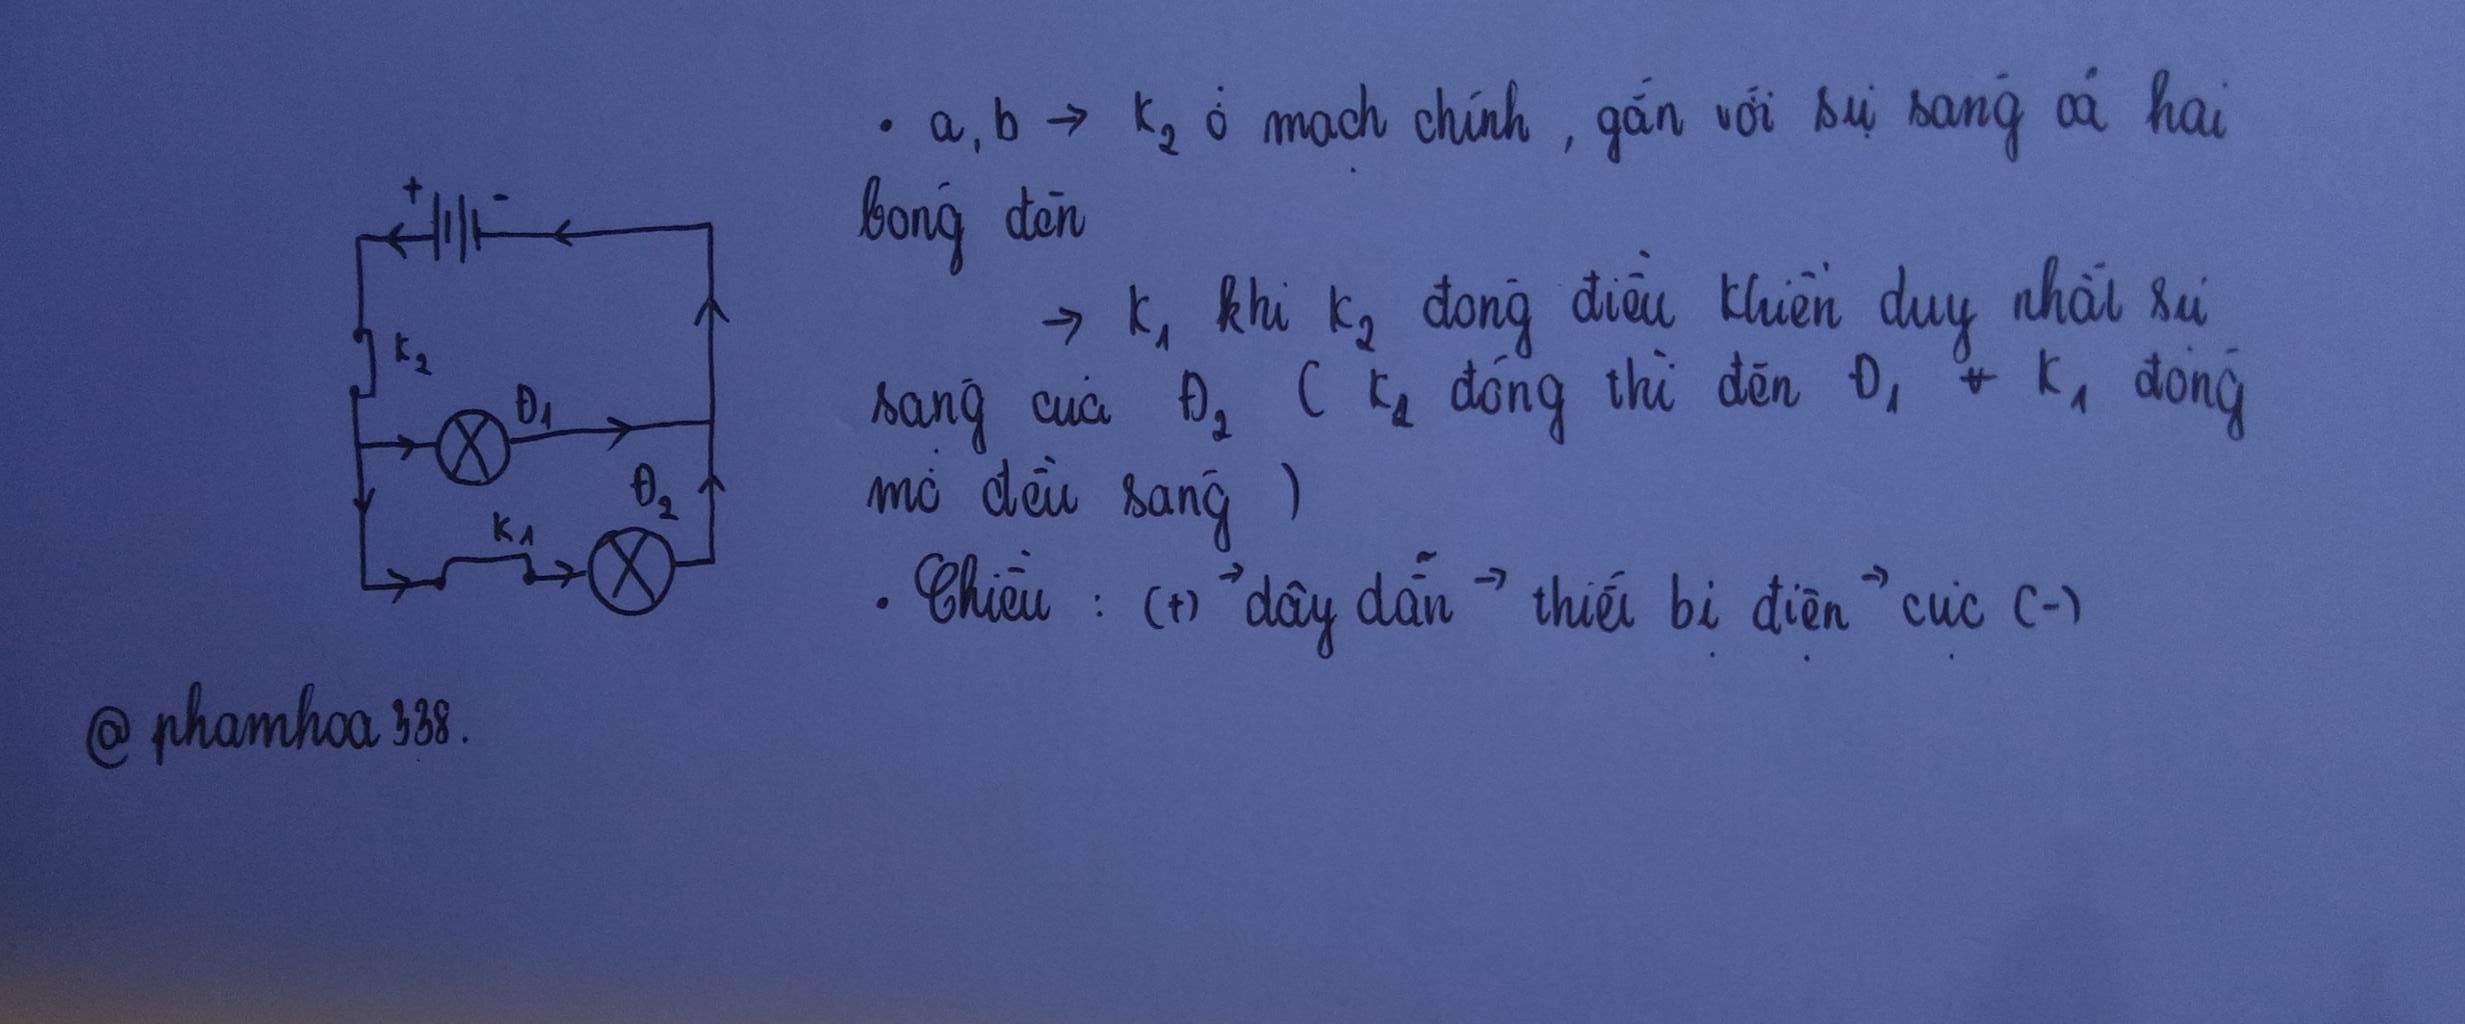 + -
K₂
Đ₁
Đ₂
K₁
• a, b → K₂ ở mạch chính, gắn với sự sáng cả hai
bóng đèn
→ K₁ khi K₂ đóng điều khiển duy nhất sự
sáng của Đ₂ ( K₂ đóng thì đèn Đ₁ K₁ đóng
mở đều sáng )
• Chiều : (+) → dây dẫn → thiết bị điện → cực (-)
@ phamhoa338.